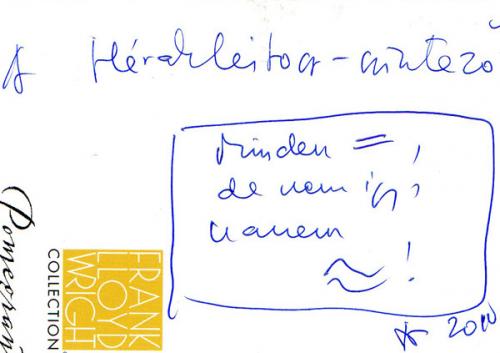 Hérakleitosz-
Minden = ,
de nem így,
hanem
≈ !
2010
FRANK
LLOYD
WRIGH
COLLECTION
Pomegran